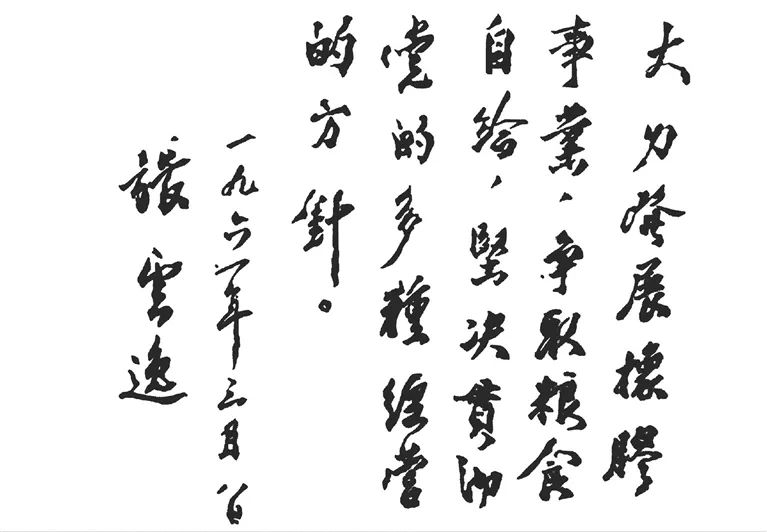 大力發展橡膠
事業，争取粮食
自給，堅決貫沏
党的多種經營
的方針。
一九六一年三月八日
張雲逸